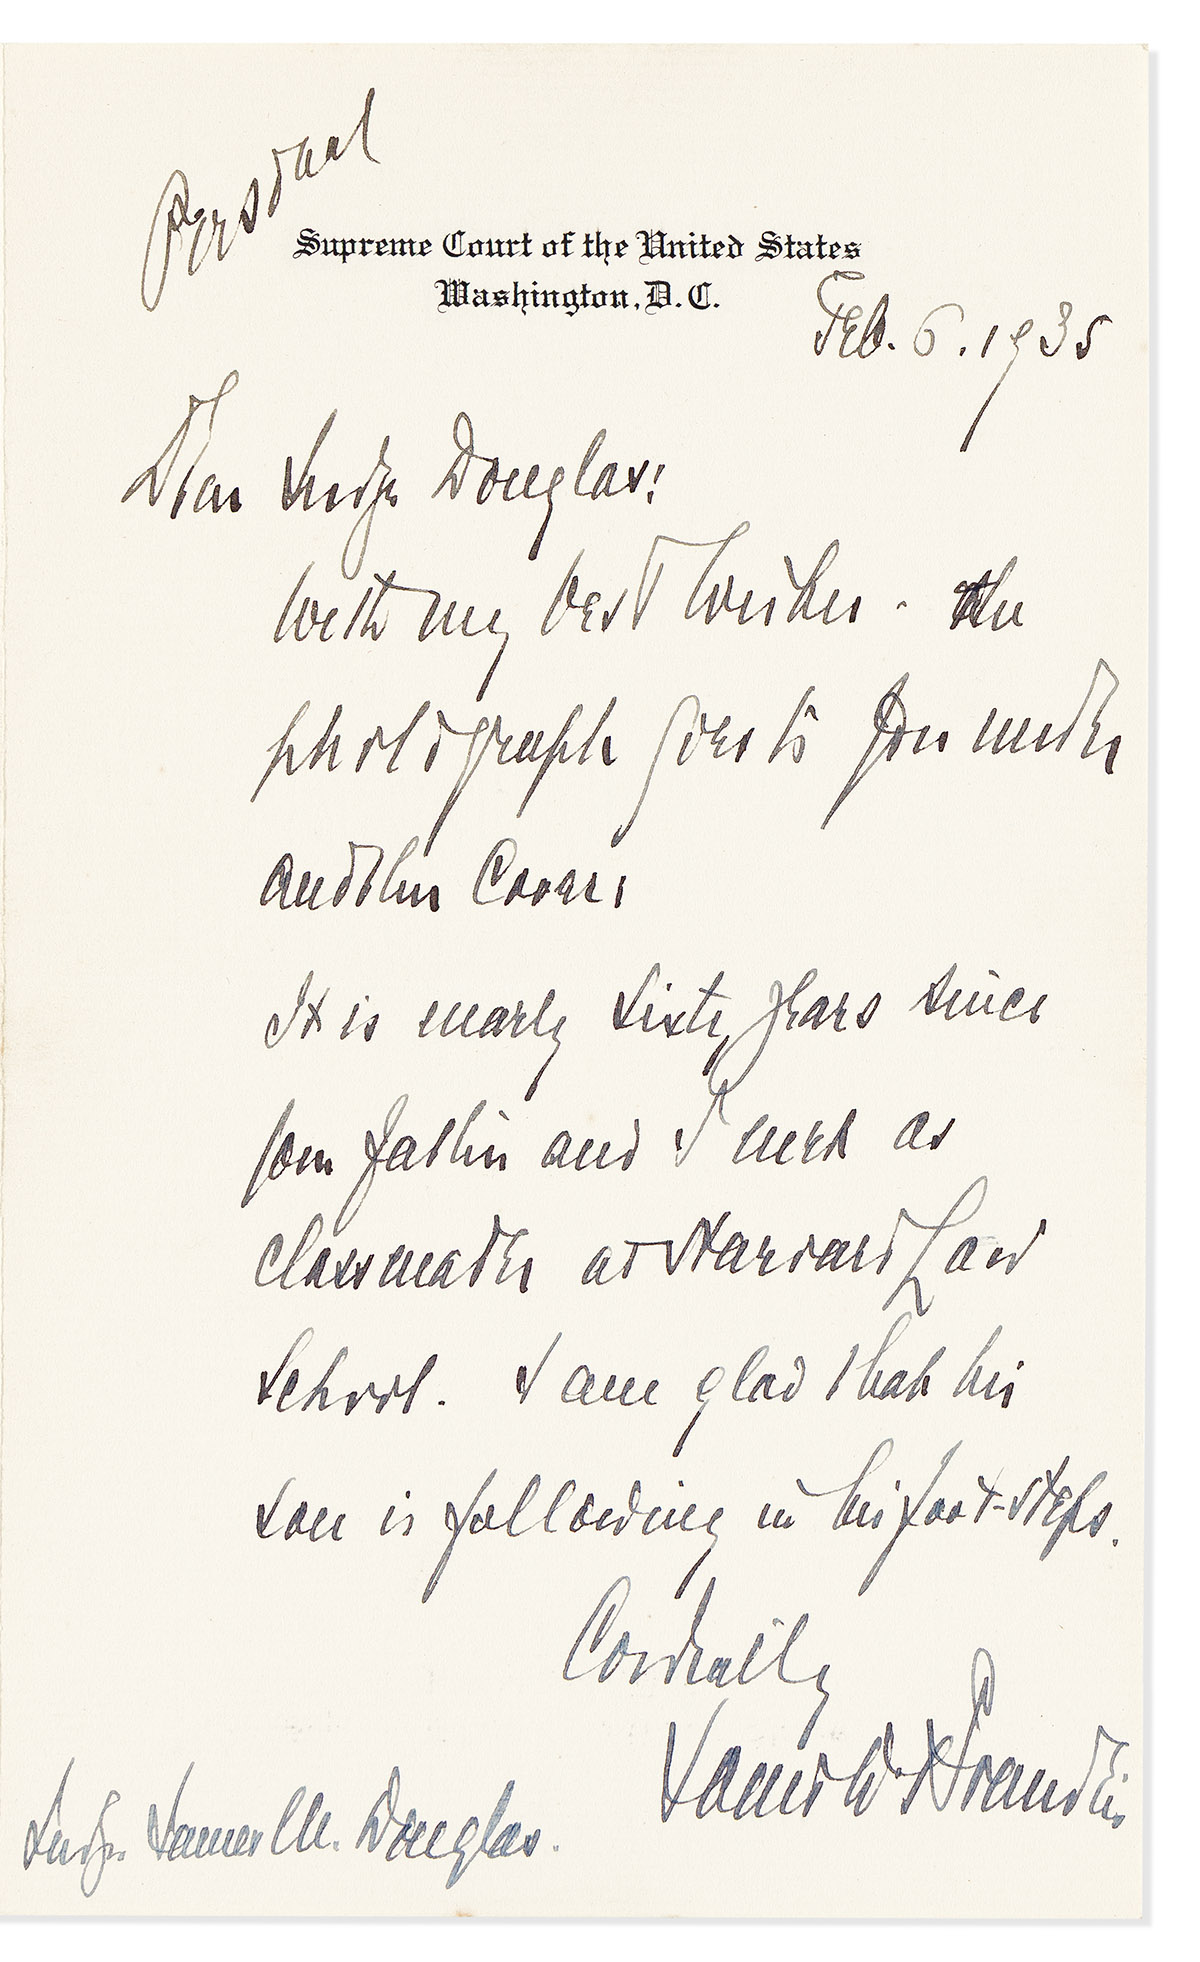 Personal
Supreme Court of the United States
Washington, D.C.
Feb. 6. 1935
Dear Judge Douglas:
With my best wishes - the
photograph goes to you under
another cover.
It is nearly sixty years since
your father and I met as
classmates at Harvard Law
School. I am glad that his
son is following in his foot-steps.
Cordially
Louis D. Brandeis
Judge James M. Douglas.